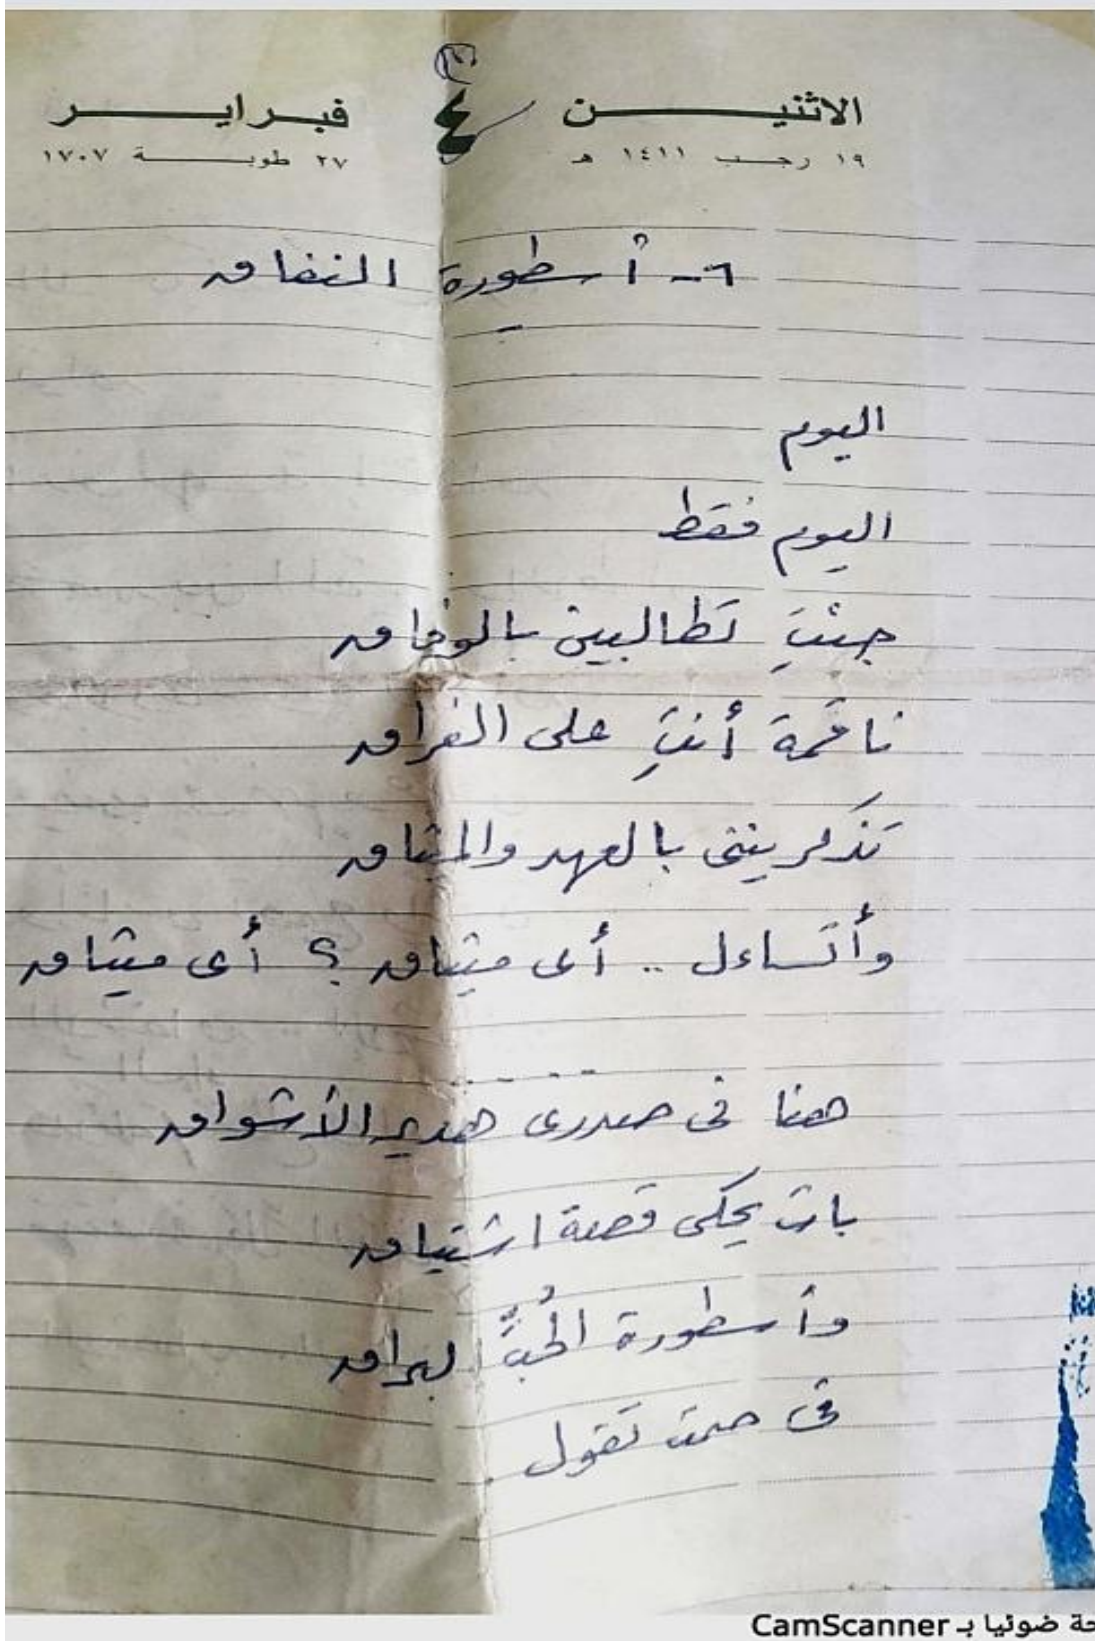 الاثنين ٤ فبراير
١٩ رجب ١٤١١ هـ ٢٧ طوبة ١٧٠٧
٦- أسطورة النفاق
اليوم
اليوم فقط
جئتِ تطالبين بالوفاق
ناقمة أنتِ على الفراق
تذكرينني بالعهد والميثاق
وأتساءل .. أى ميثاق ؟ أى ميثاق
- - - -
ههنا فى صدرى هدير الأشواق
بات يحكى قصة اشتياق
وأسطورة الحُبِّ البراق
فى صمت تقول .
حة ضوئيا بـ CamScanner